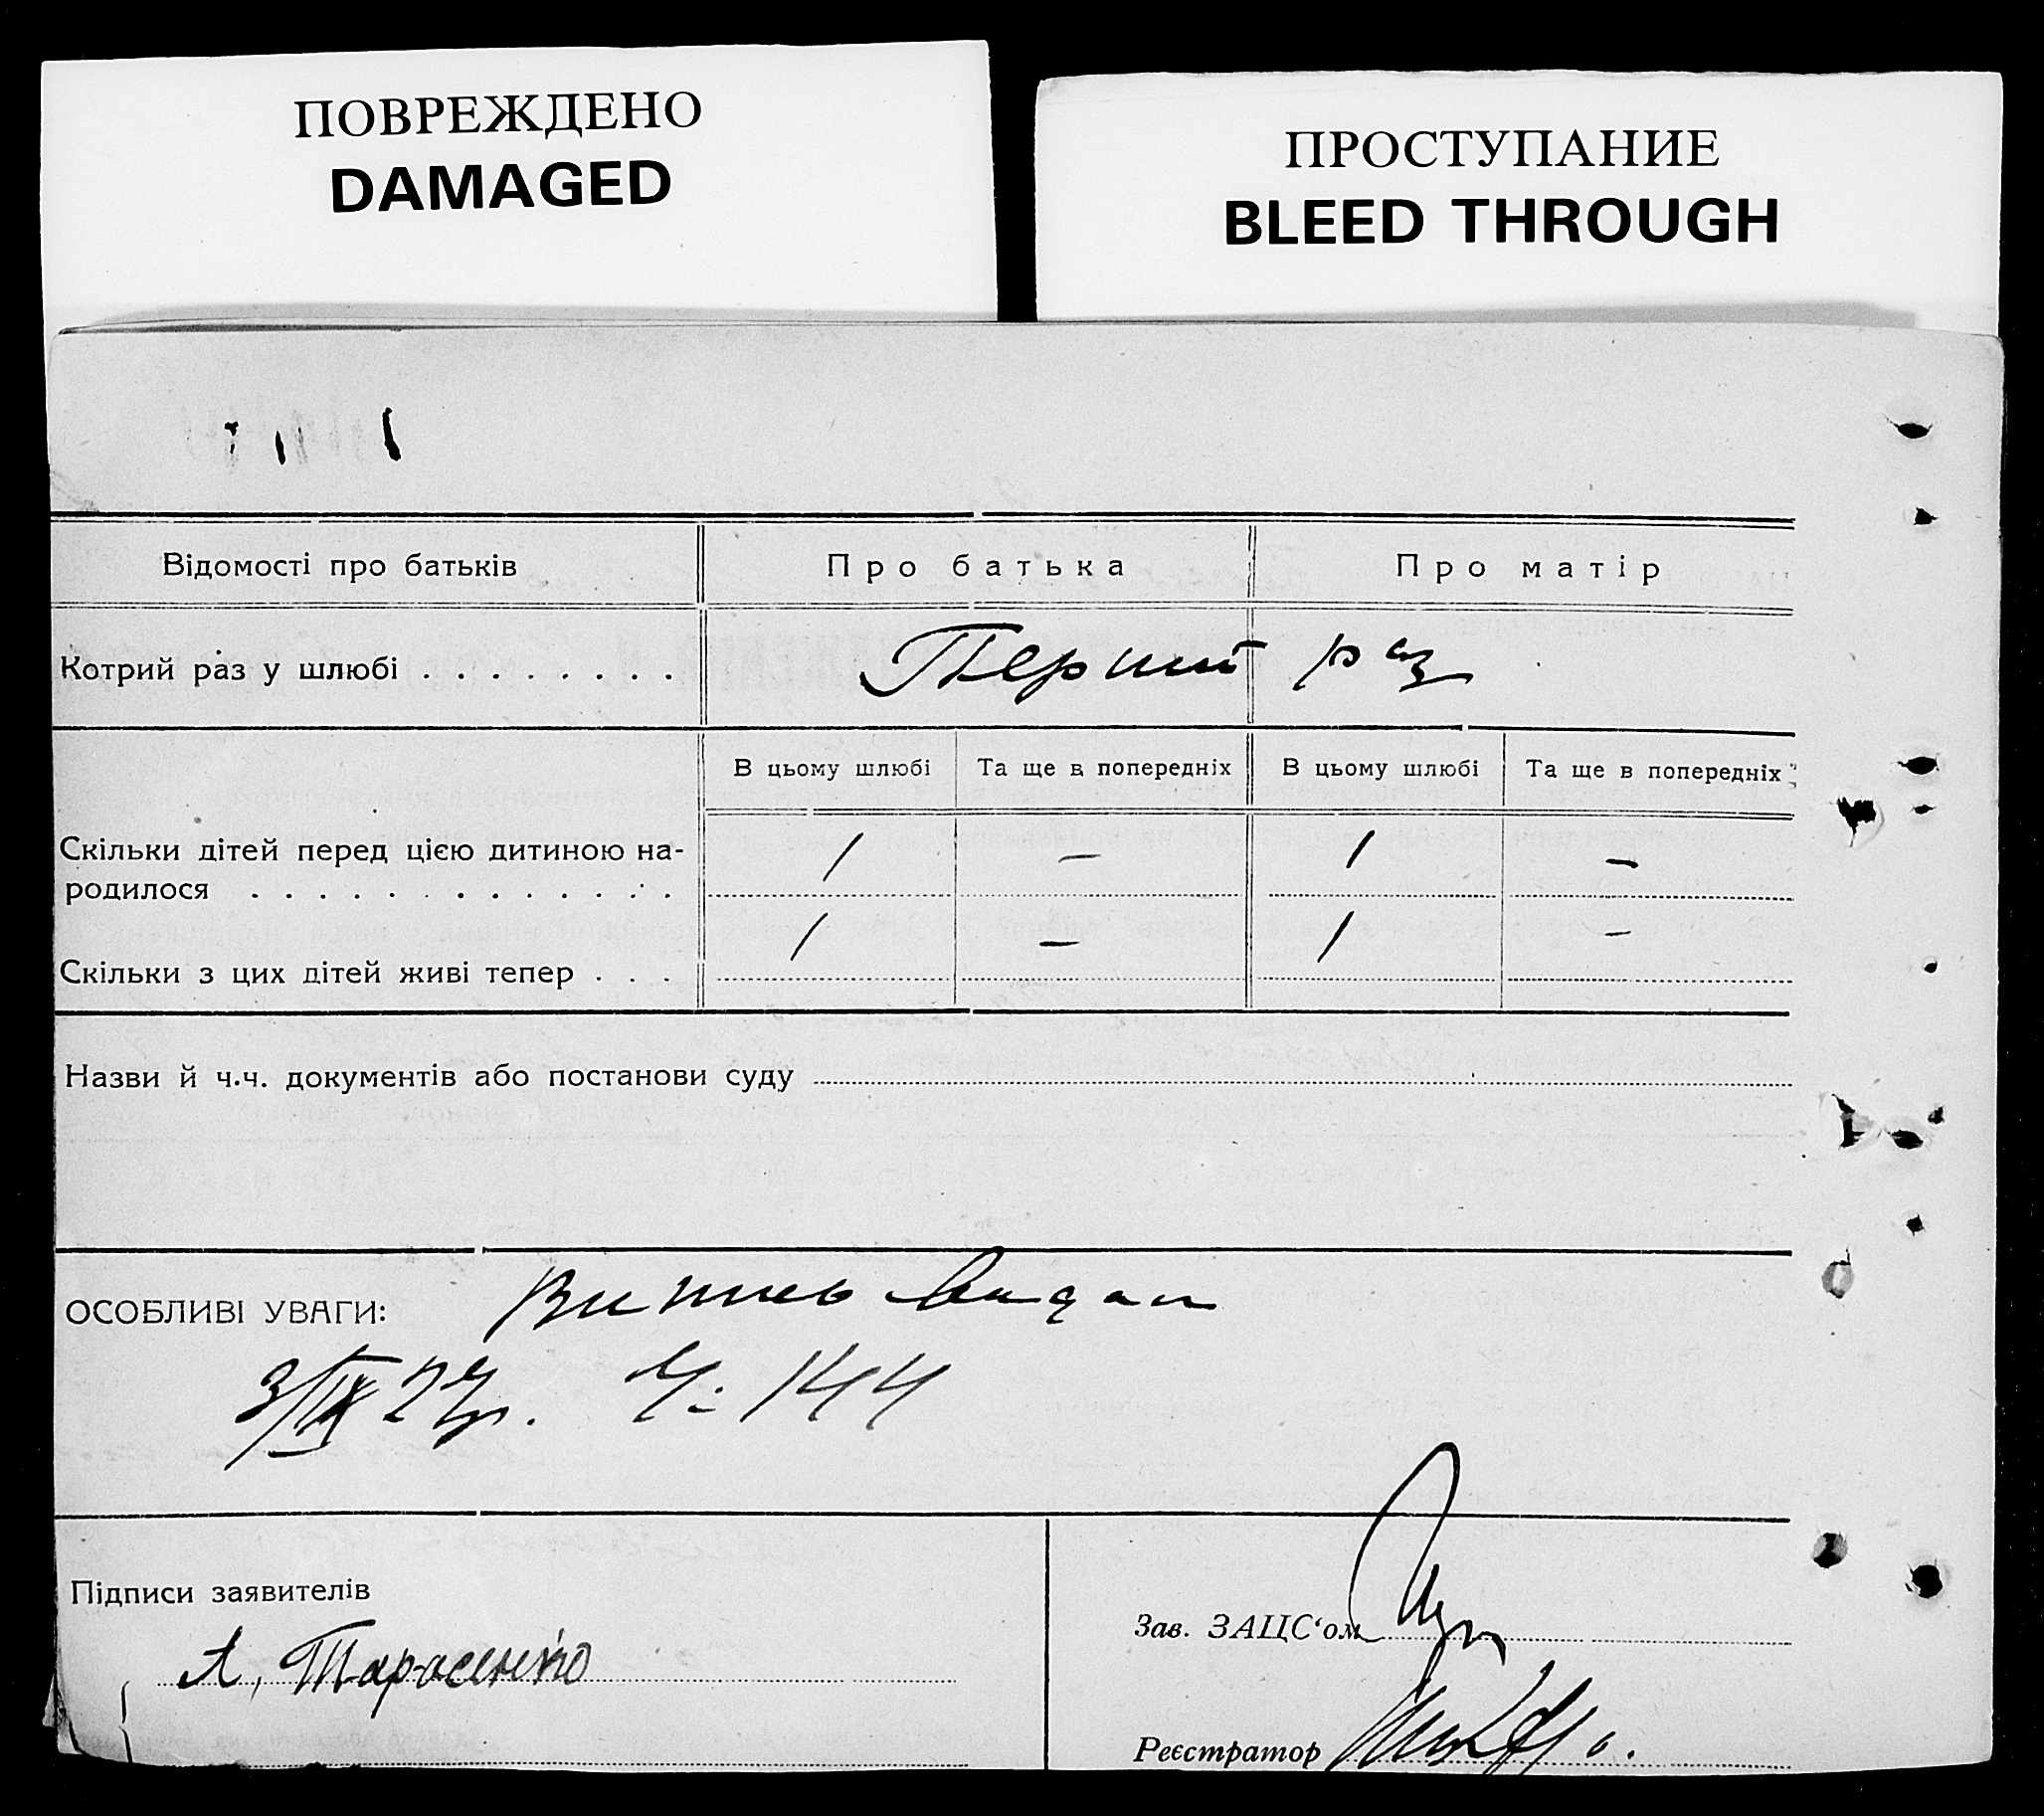 ПОВРЕЖДЕНО
DAMAGED
ПРОСТУПАНИЕ
BLEED THROUGH
Відомості про батьків Про батька Про матір
Котрий раз у шлюбі . . . . . . . . Перший раз
В цьому шлюбі Та ще в попередніх В цьому шлюбі Та ще в попередніх
Скільки дітей перед цією дитиною на-
родилося . . . . . . . . . . . . . 1 — 1 —
Скільки з цих дітей живі тепер . . . 1 — 1 —
Назви й ч.ч. документів або постанови суду
ОСОБЛИВІ УВАГИ: Випись видан
3/IX 27р. Ч: 144
Підписи заявителів
А, Тарасенко
Зав. ЗАЦС‘ом
Реєстратор